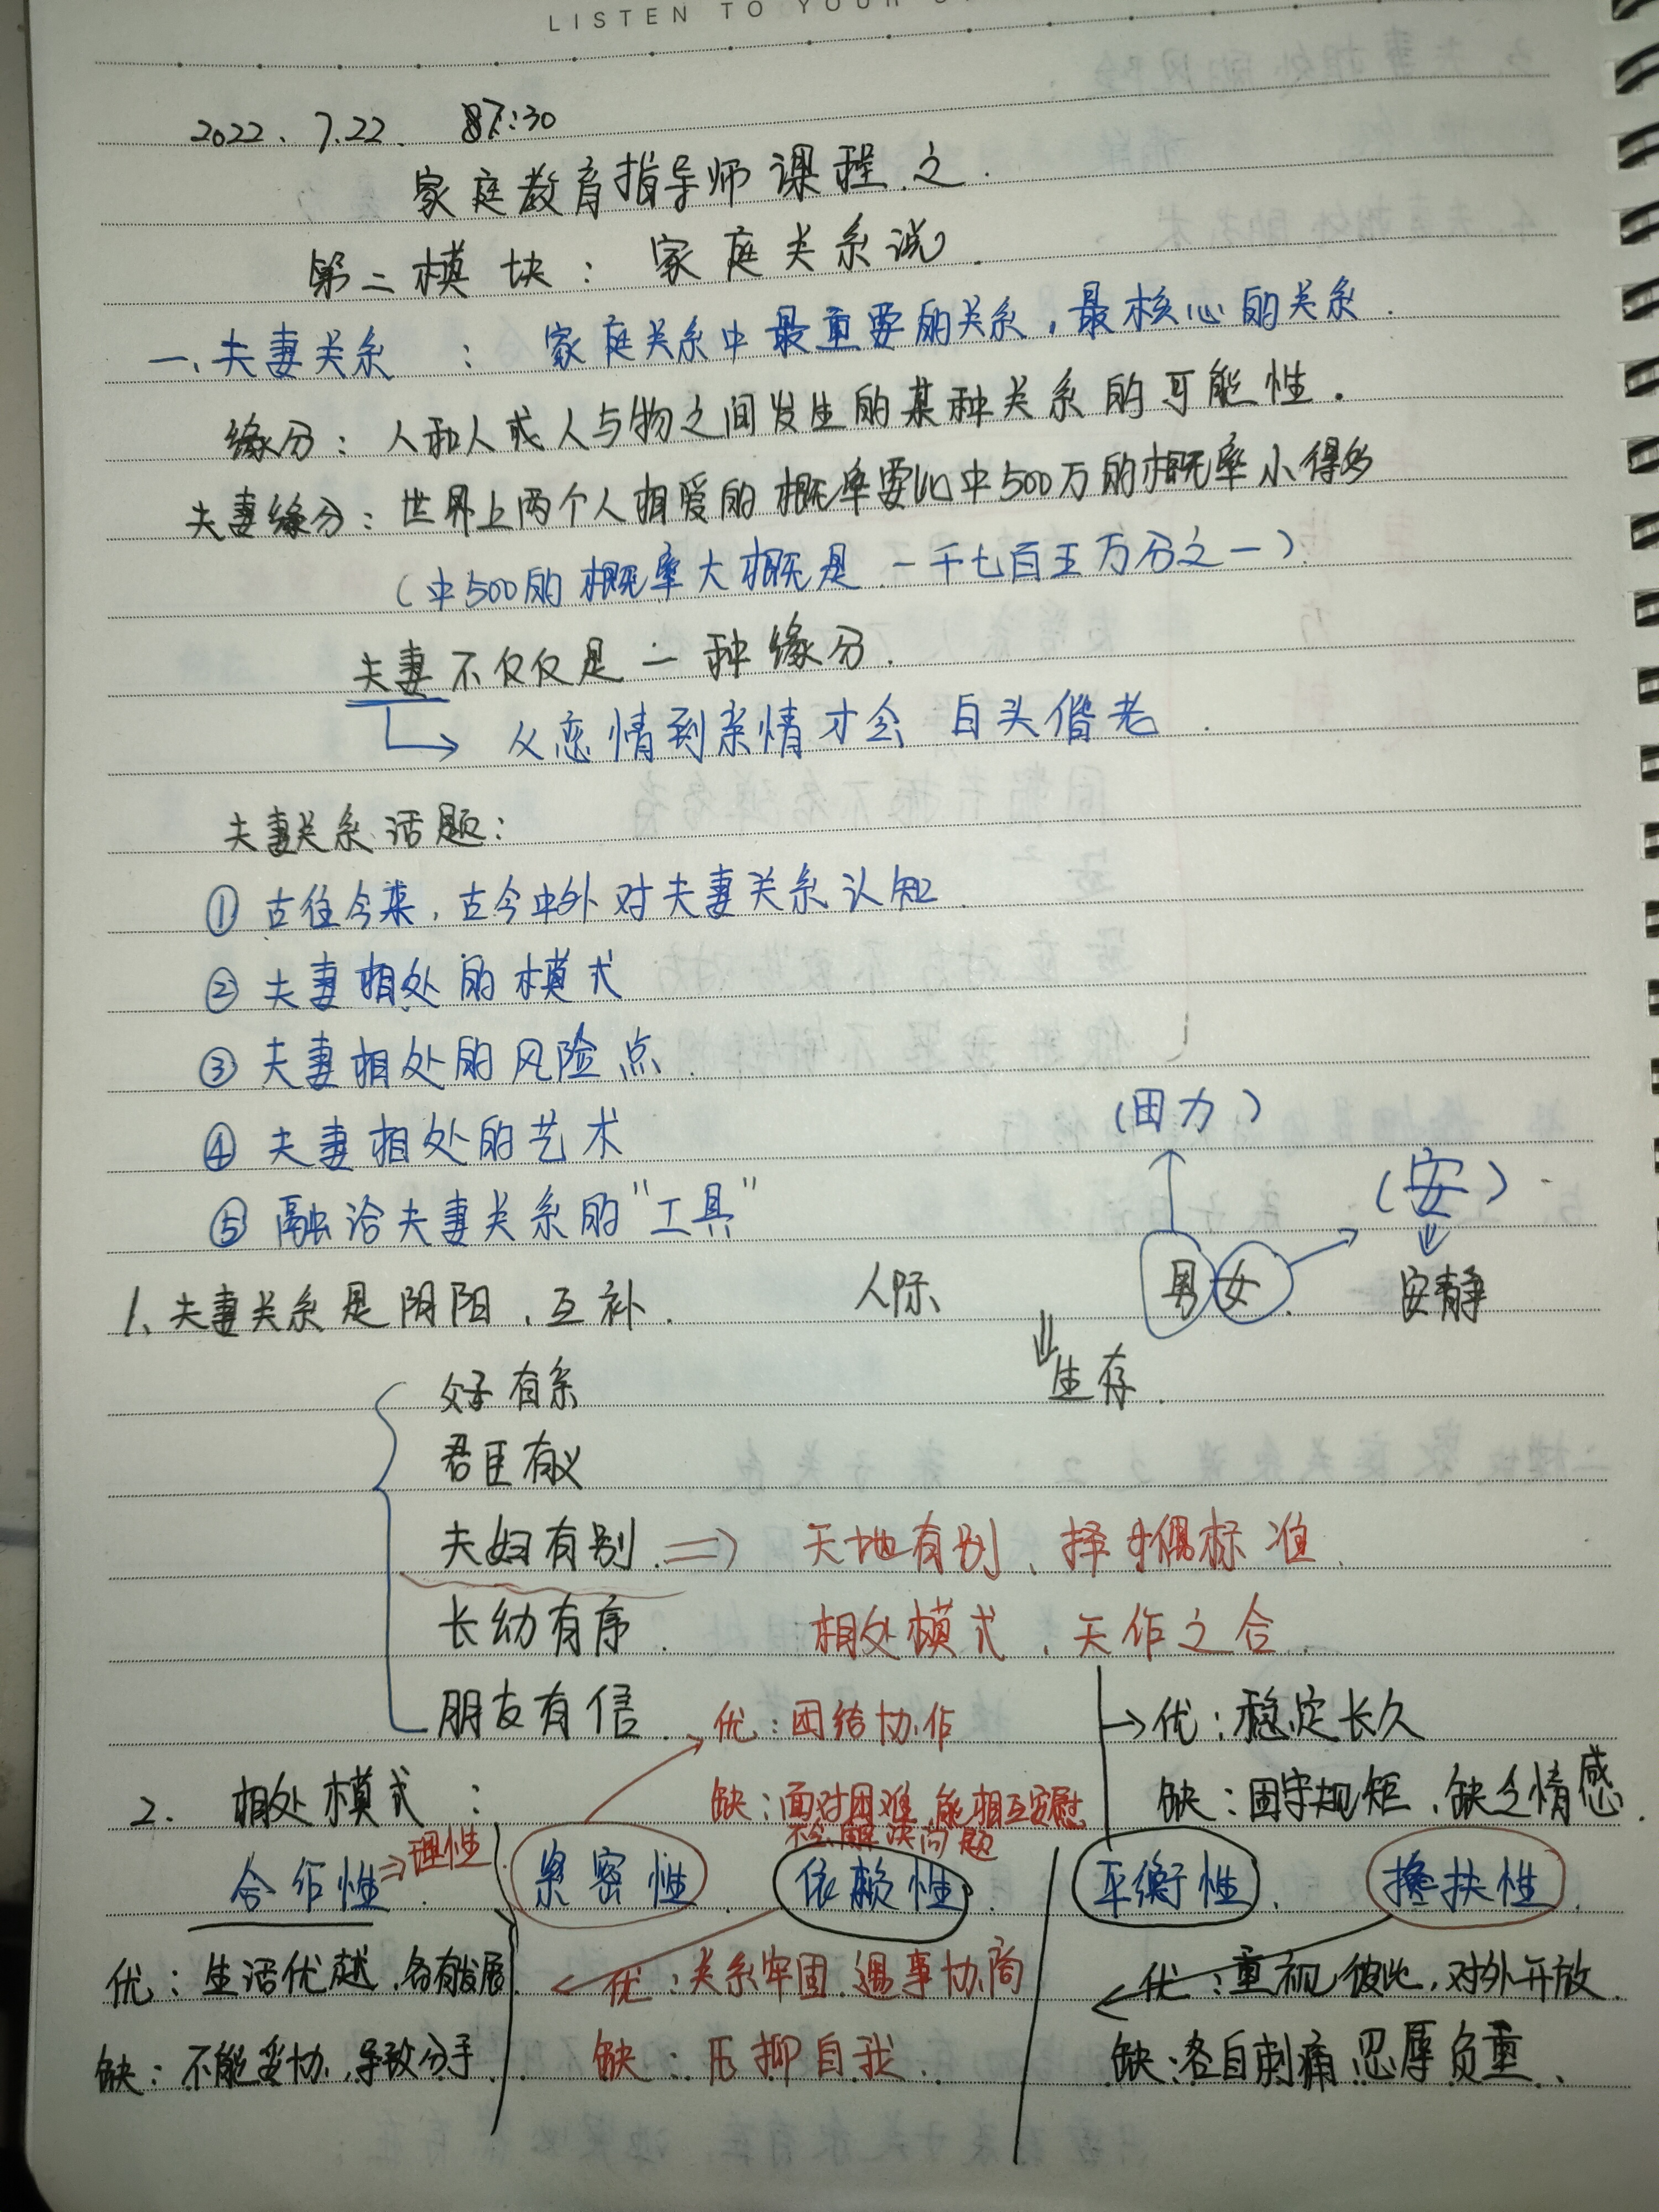 LISTEN TO YOUR
2022.7.22. 87:30
家庭教育指导师课程之.
第二模块：家庭关系说
一、夫妻关系：家庭关系中最重要的关系，最核心的关系.
缘分：人和人或人与物之间发生的某种关系的可能性.
夫妻缘分：世界上两个人相爱的概率要比中500万的概率小得多
（中500的概率大概是一千七百五万分之一）
夫妻不仅仅是一种缘分.
从恋情到亲情才会 白头偕老.
夫妻关系话题：
① 古往今来，古今中外对夫妻关系认知.
② 夫妻相处的模式
③ 夫妻相处的风险点.
④ 夫妻相处的艺术
（田力）
（安）
⑤ 融洽夫妻关系的"工具"
1、夫妻关系是阴阳，互补. 人际 男女. 安静
生存.
父子有亲
君臣有义
夫妇有别. ⇒ 天地有别、择偶标准.
长幼有序. 相处模式、天作之合.
朋友有信. 优：团结协作 → 优：稳定长久
2. 相处模式： 缺：面对困难，能相互安慰 缺：固守规矩、缺乏情感.
不会解决问题
合作性 ⇒理性. 紧密性. 依赖性. 平衡性. 搀扶性.
优：生活优越，各有发展 优：关系牢固 遇事协商 优：重视彼此，对外开放.
缺：不能妥协，导致分手 缺：压抑自我. 缺：各自刺痛 忍辱负重.